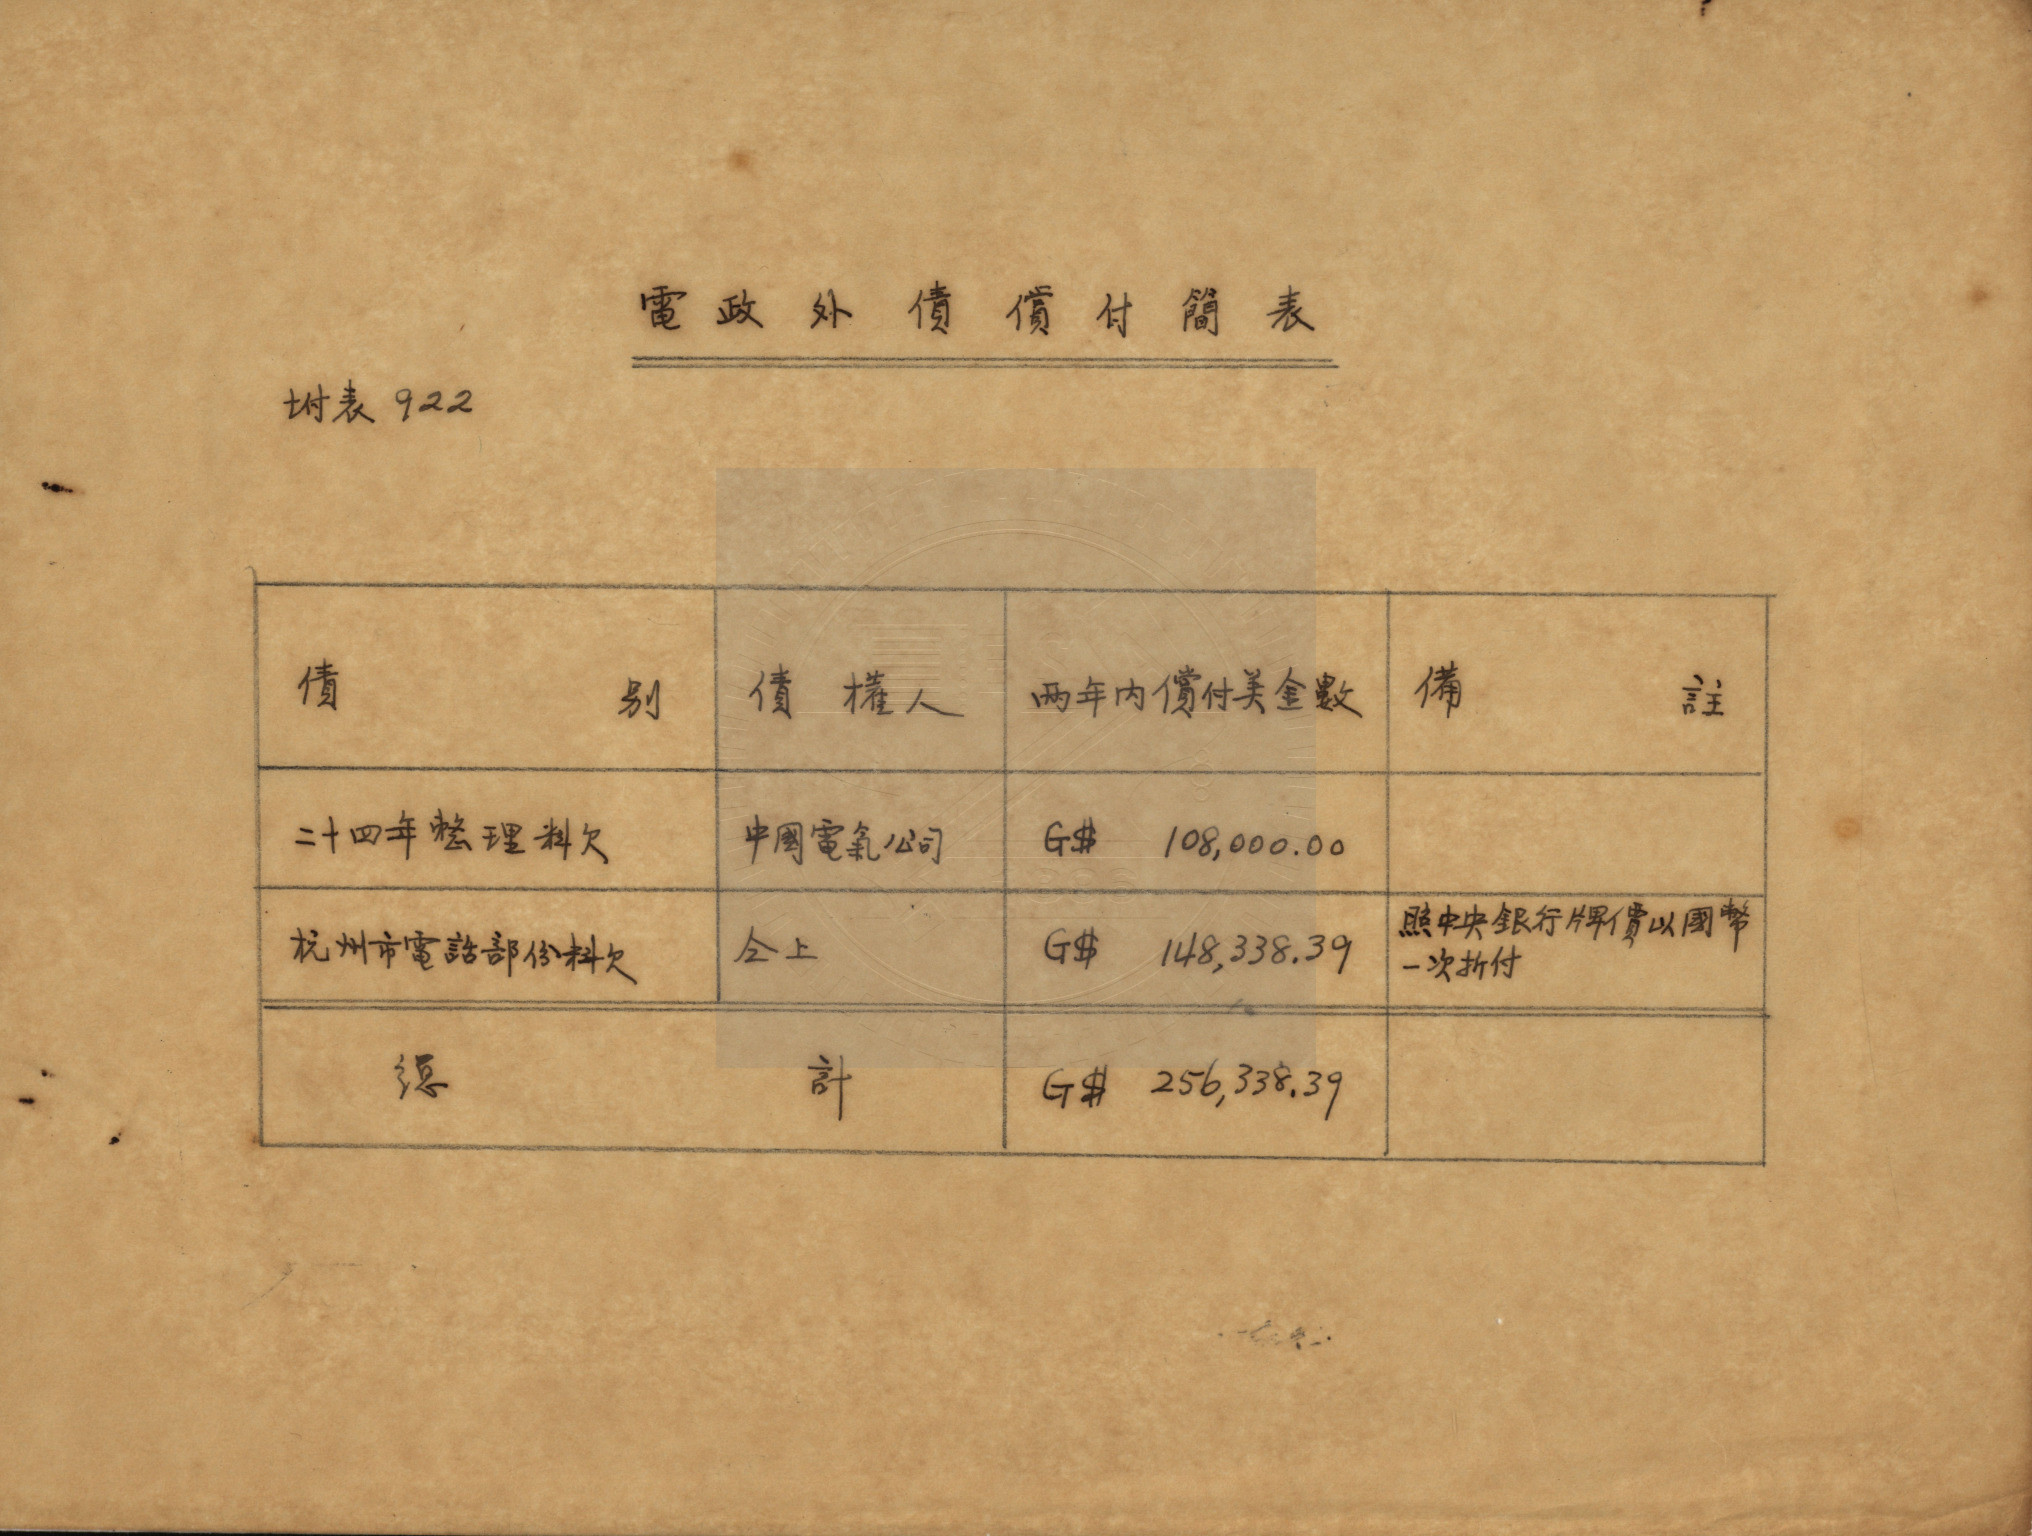 電政外債償付簡表
坿表 922
債別 債權人 两年內償付美金數 備註
二十四年整理料欠 中國電氣公司 G$ 108,000.00
杭州市電話部份料欠 仝上 G$ 148,338.39 照中央銀行牌價以國幣
一次折付
總計 G$ 256,338.39